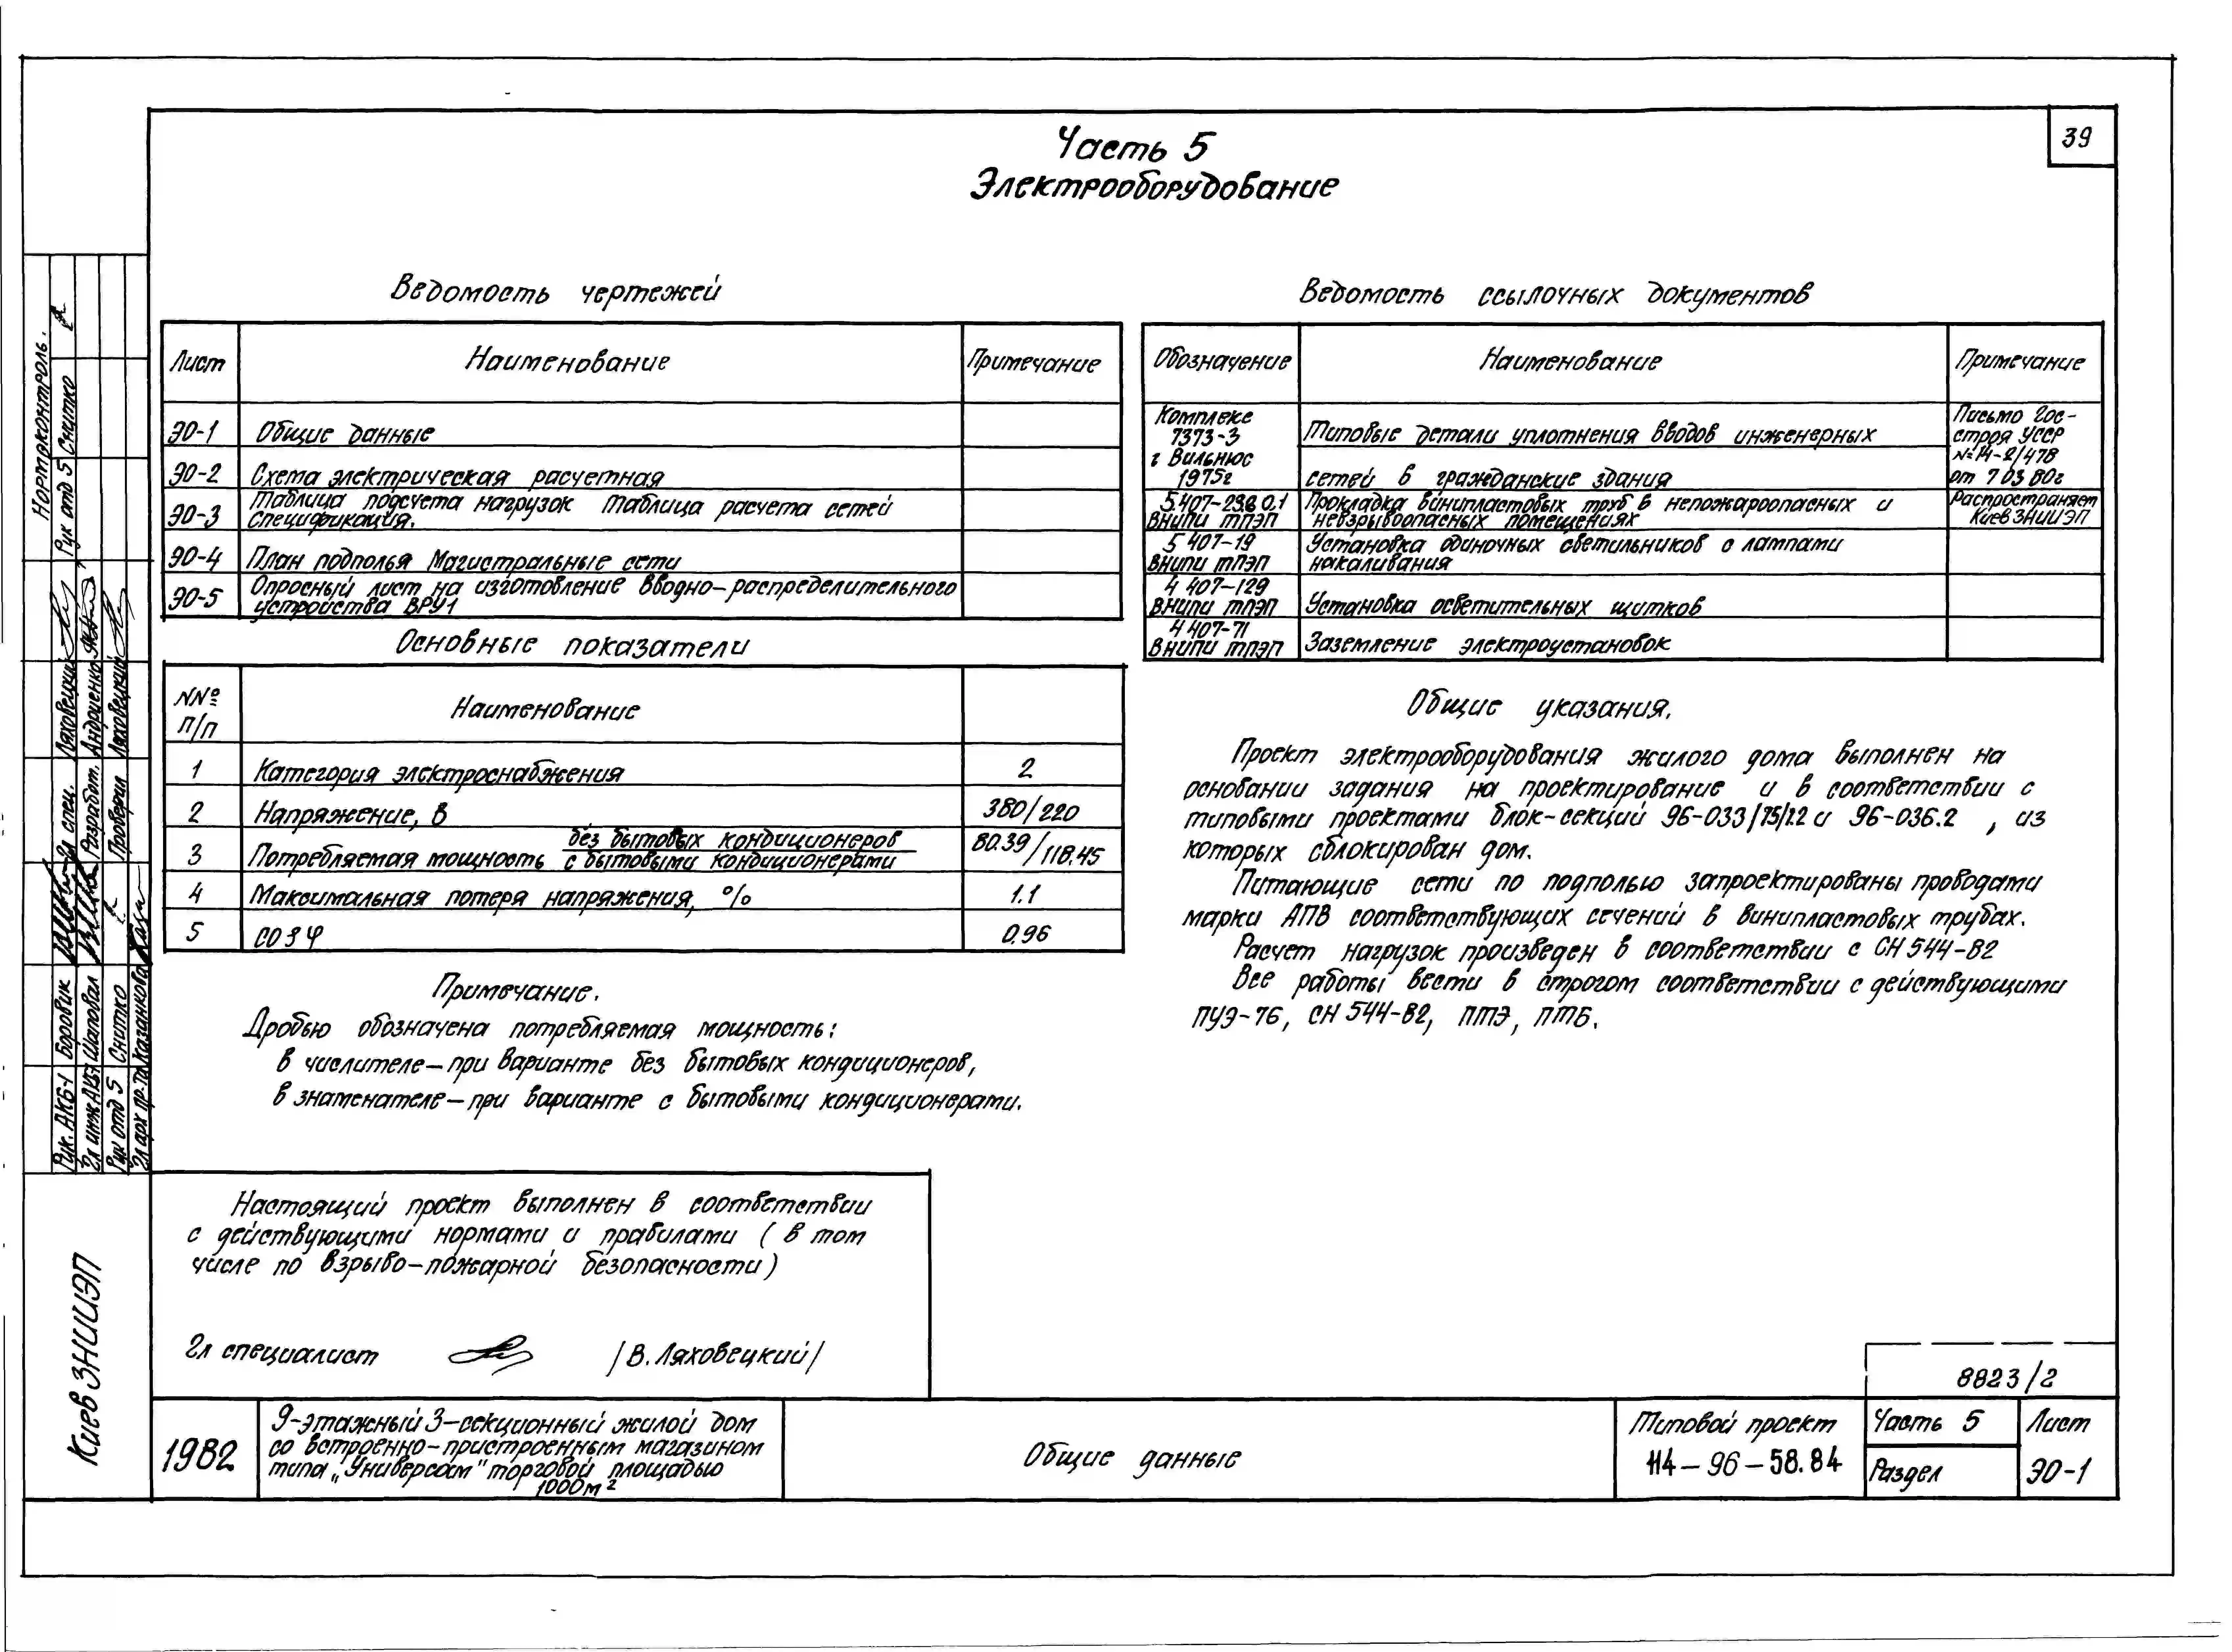 39
Часть 5
Электрооборудование
Ведомость чертежей
Лист Наименование Примечание
ЭО-1 Общие данные
ЭО-2 Схема электрическая расчетная
ЭО-3 Таблица подсчета нагрузок Таблица расчета сетей
Спецификация.
ЭО-4 План подполья Магистральные сети
ЭО-5 Опросный лист на изготовление вводно-распределительного
устройства ВРУ1
Основные показатели
NN№
п/п
Наименование
1 Категория электроснабжения 2
2 Напряжение, В 380/220
3 Потребляемая мощность без бытовых кондиционеров
с бытовыми кондиционерами
80.39/118.45
4 Максимальная потеря напряжения, % 1.1
5 cos φ 0.96
Примечание.
Дробью обозначена потребляемая мощность:
в числителе-при варианте без бытовых кондиционеров,
в знаменателе-при варианте с бытовыми кондиционерами.
Ведомость ссылочных документов
Обозначение Наименование Примечание
Комплекс
7373-3
г Вильнюс
1975г
Типовые детали уплотнения вводов инженерных
сетей в гражданские здания
Письмо Гос-
строя УССР
№14-2/478
от 7 03 80г
ВНИПИ ТПЭП
Прокладка винипластовых труб в непожароопасных и
невзрывоопасных помещениях
Распространяет
Киев ЗНИИЭП
5 407-19
ВНИПИ ТПЭП
Установка одиночных светильников с лампами
накаливания
4 407-129
ВНИПИ ТПЭП
Установка осветительных щитков
4 407-71
ВНИПИ ТПЭП
Заземление электроустановок
Общие указания.
Проект электрооборудования жилого дома выполнен на
основании задания на проектирование и в соответствии с
типовыми проектами блок-секций 96-033/75/1.2 и 96-036.2 , из
которых сблокирован дом.
Питающие сети по подполью запроектированы проводами
марки АПВ соответствующих сечений в винипластовых трубах.
Расчет нагрузок произведен в соответствии с СН 544-82
Все работы вести в строгом соответствии с действующими
ПУЭ-76, СН 544-82, ПТЭ, ПТБ.
Настоящий проект выполнен в соответствии
с действующими нормами и правилами ( в том
числе по взрыво-пожарной безопасности)
Гл специалист /В. Ляховецкий/
8823/2
1982
9-этажный 3-секционный жилой дом
со встроенно-пристроенным магазином
типа „Универсам" торговой площадью
1000м²
Общие данные
Типовой проект
114-96-58.84
Часть 5
Раздел
Лист
ЭО-1
Киев ЗНИИЭП
Рук. АКБ-1 Боровик
Гл инж АКБ-1 Шаповал
Рук отд 5 Снитко
Гл арх пр-та Казанкова
Гл спец. Ляховецкий
Разработ. Андриенко
Проверил Ляховецкий
Нормаконтроль.
Рук отд 5 Снитко